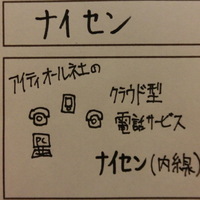 ナイセン
アイティオール社の
クラウド型
電話サービス
PC
ナイセン(内線)